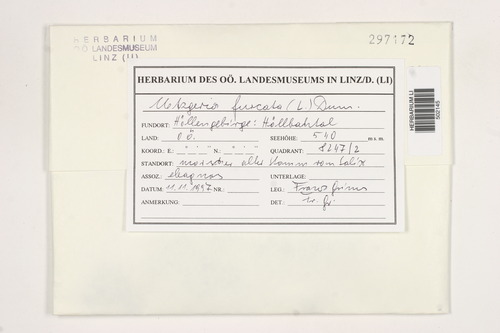 HERBARIUM
OÖ. LANDESMUSEUM
LINZ (LI)
297172
HERBARIUM DES OÖ. LANDESMUSEUMS IN LINZ/D. (LI)
Metzgeria furcata (L.) Dum.
FUNDORT: Höllengebirge: Höllbachtal
LAND: OÖ. SEEHÖHE: 540 m s. m.
KOORD.: E: ° ' " N: ° ' " QUADRANT: 8247/2
STANDORT: morscher alter Stamm von Salix
ASSOZ.: eleagnos UNTERLAGE:
DATUM: 11.11.1997 NR.: LEG.: Franz Grims
ANMERKUNG: DET.:
HERBARIUM LI
502145